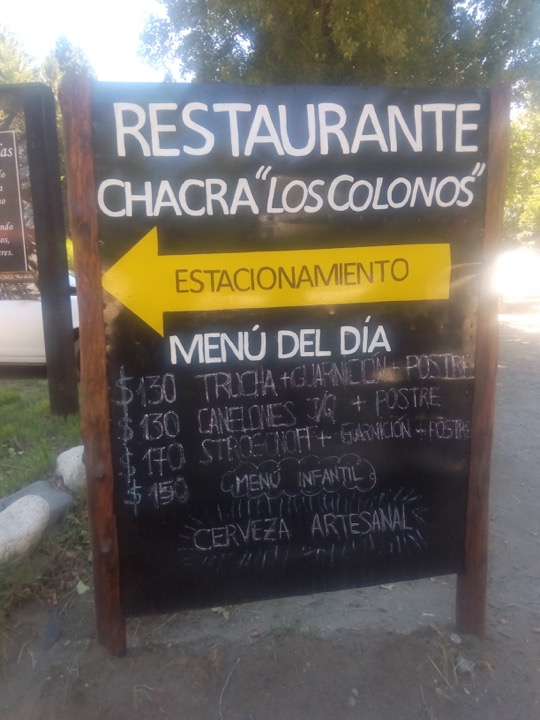 RESTAURANTE
CHACRA "LOS COLONOS"
ESTACIONAMIENTO
MENÚ DEL DÍA
$130 TRUCHA + GUARNICION + POSTRE
$130 CANELONES J/Q + POSTRE
$170 STROGONOFF + GUARNICIÓN + POSTRE
$150 MENÚ INFANTIL
CERVEZA ARTESANAL